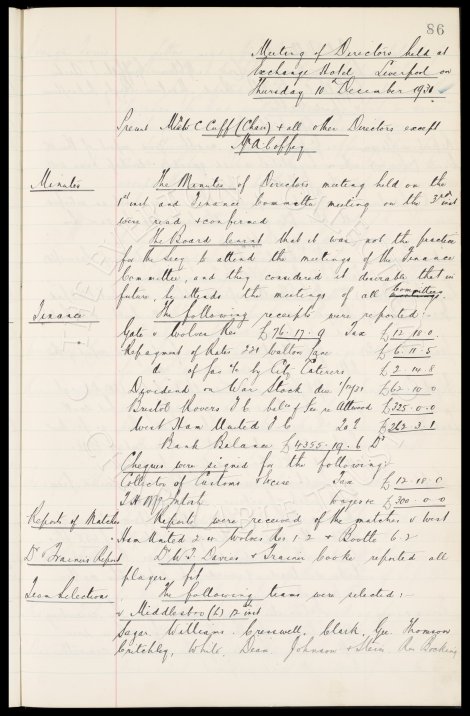 86
Meeting of Directors held at
Exchange Hotel, Liverpool on
Thursday 10th December 1931.
Present W. C. Cuff (Chair) & all other Directors except
Mr A Coffey
Minutes
The Minutes of Directors meeting held on the
1st inst and Finance Committee meeting on the 3rd inst
were read & confirmed
The Board learnt that it was not the practice
for the Secy to attend the meetings of the Finance
Committee, and they considered it desirable that in
future, he attends the meetings of all Committees
Finance
The following receipts were reported:-
Gate v Wolves Res £76.17.9 Tax £12.18.0
Repayment of Rates 221 Walton Lane £6.11.5
do of Gas % by City Caterers £2.14.8
Dividend on War Stock due 1/12/31 £62.10.0
Bristol Rovers F C balce of fee re Attwood £325.0.0
West Ham United F C £262.3.1
Bank Balance £4355.19.6 Dr
Cheques were signed for the following:
Collector of Customs & Excise Tax £12.18.0
T. H. McIntosh Wages &c £300.0.0
Reports of Matches
Reports were received of the matches v West
Ham United 2.4 Wolves Res 1.2 & Bootle 6.2
Dr & Trainers Report
Dr W. F. Davies & Trainer Cooke reported all
players fit
Team Selections
The following teams were selected:-
v Middlesbro (L) 12th inst
Sagar, Williams. Cresswell, Clark, Gee. Thomson
Critchley, White, Dean Johnson & Stein. Res Bocking